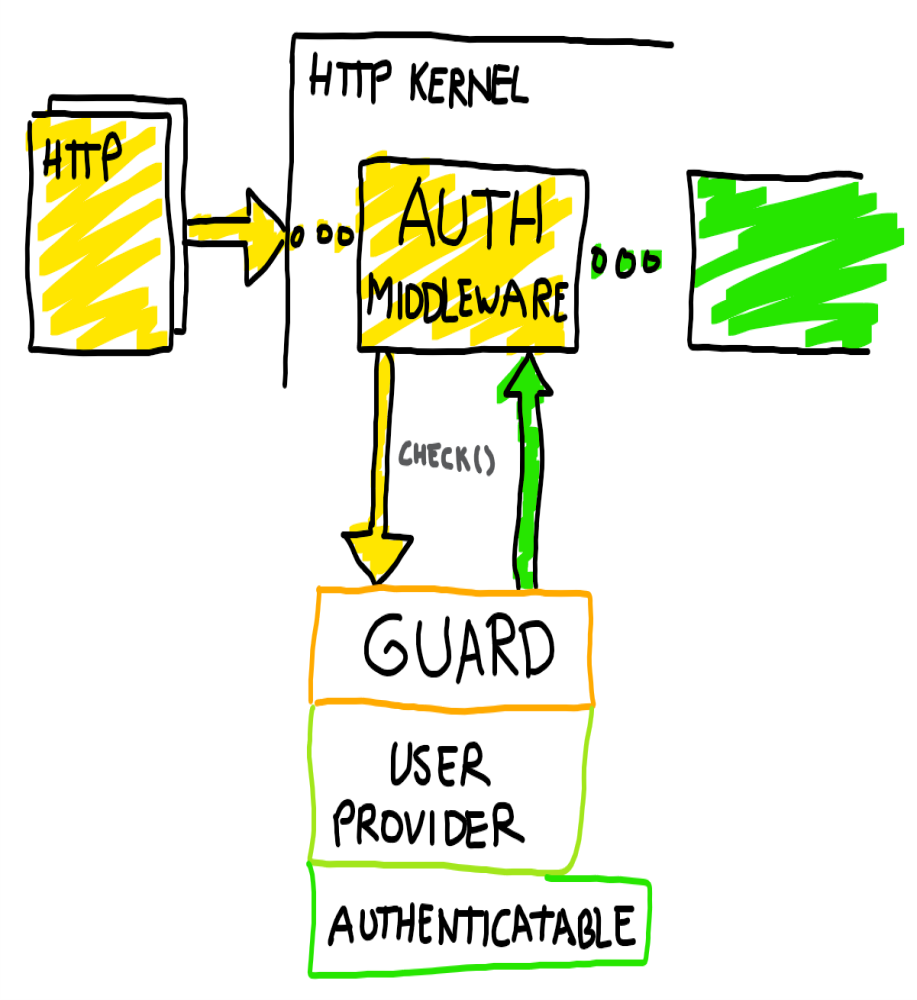 HTTP KERNEL
HTTP
AUTH
MIDDLEWARE
CHECK()
GUARD
USER
PROVIDER
AUTHENTICATABLE